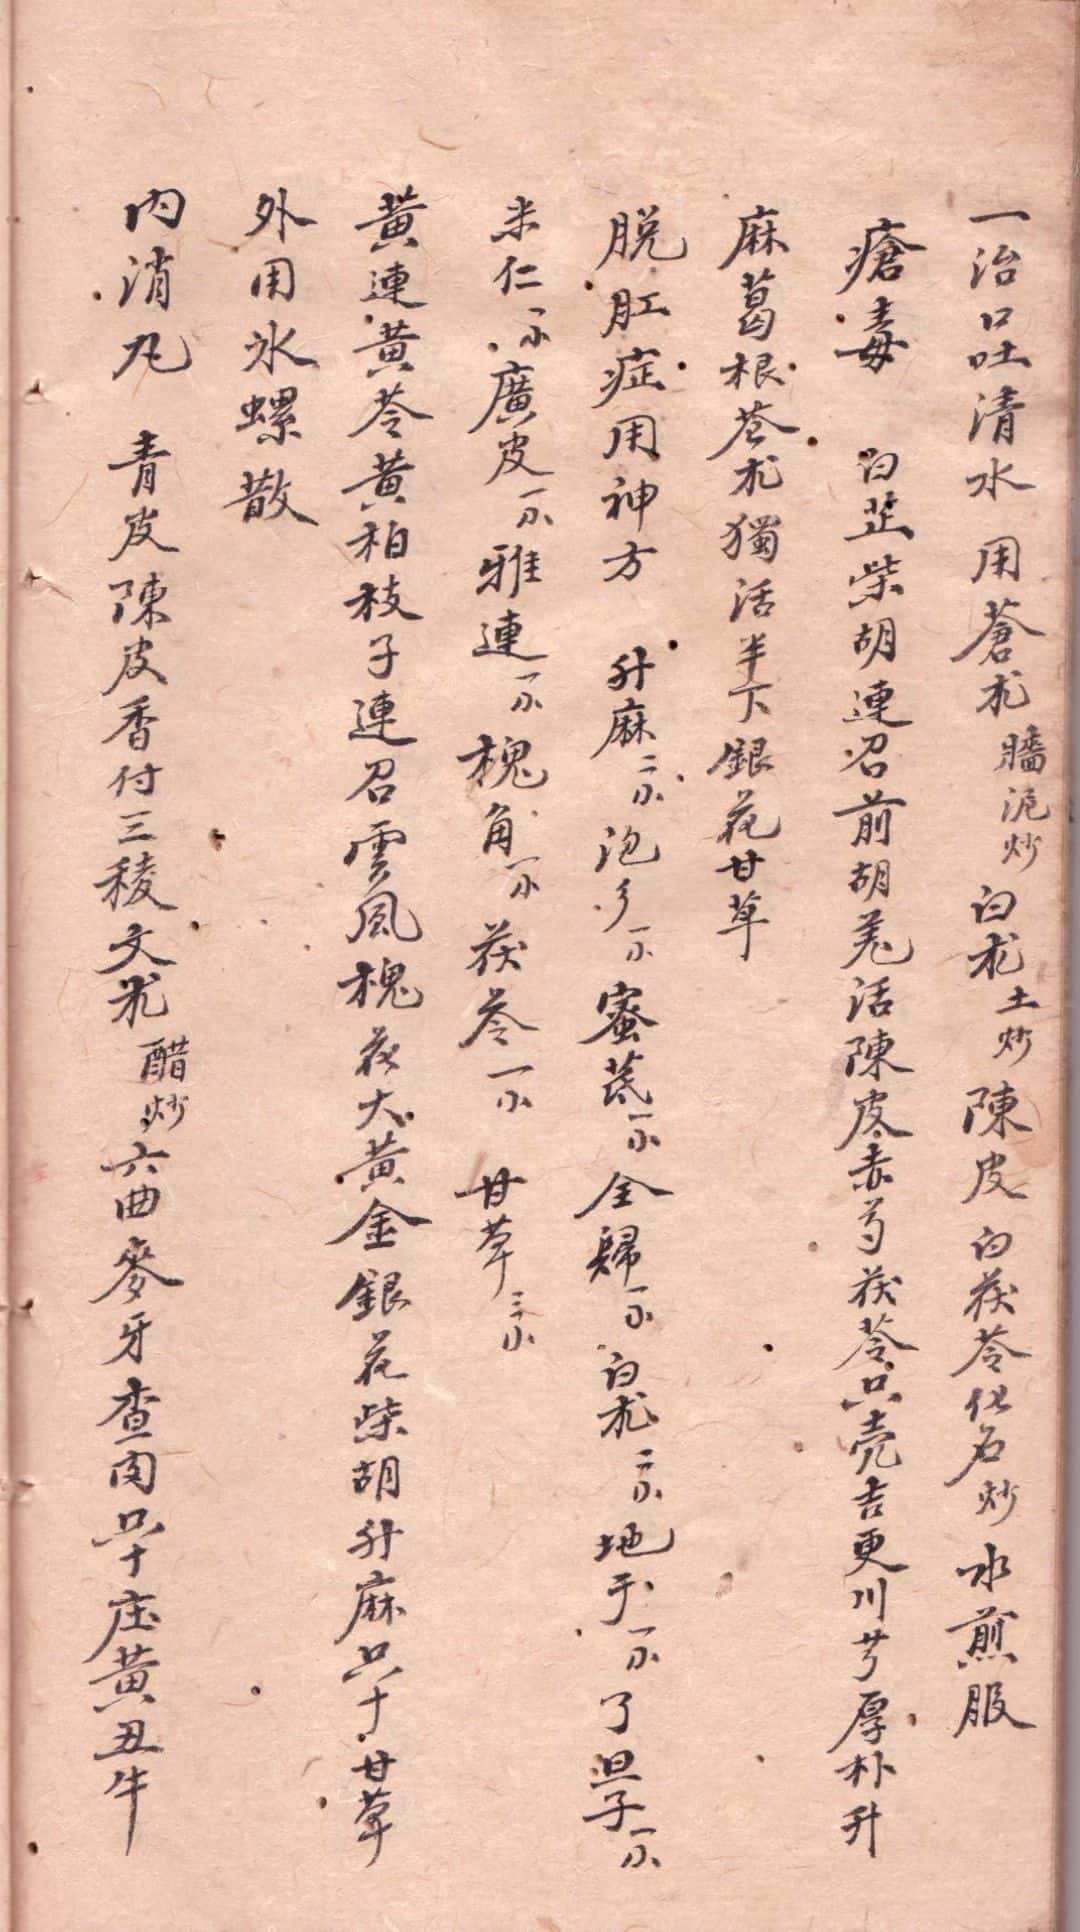 一治口吐清水 用蒼朮牆泥炒白朮土炒陳皮白茯苓化石炒水煎服
瘡毒 白芷柴胡連召前胡羌活陳皮赤芍茯苓只壳吉更川芎厚朴升
麻葛根苍朮獨活半下銀花甘草
脱肛症用神方 升麻二 泡 一 蜜芪一 全歸一 白朮二 地于一 了 子一
米仁一 廣皮一 雅連一 槐角一 茯苓一 甘草三
黄連黄苓黄柏枝子連召雲風槐花大黄金銀花柴胡升麻只 甘草
外用氷螺散
内消丸 青皮陳皮香付三稜文朮醋炒六曲麥牙查肉只 庄黄丑牛